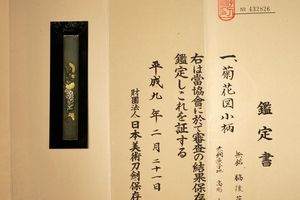 № 432826
鑑定書
一、菊花図小柄
無銘
右は當協會に於て審査の結果保存
鑑定しこれを証する
平成九年二月二十一日
財團法人日本美術刀劍保存